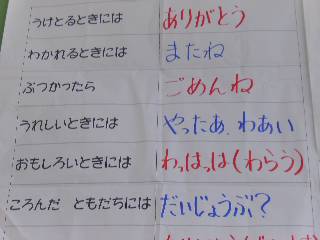 うけとるときには ありがとう
わかれるときには またね
ぶつかったら ごめんね
うれしいときには やったあ、わあい
おもしろいときには わっはっは(わらう)
ころんだ ともだちには だいじょうぶ?